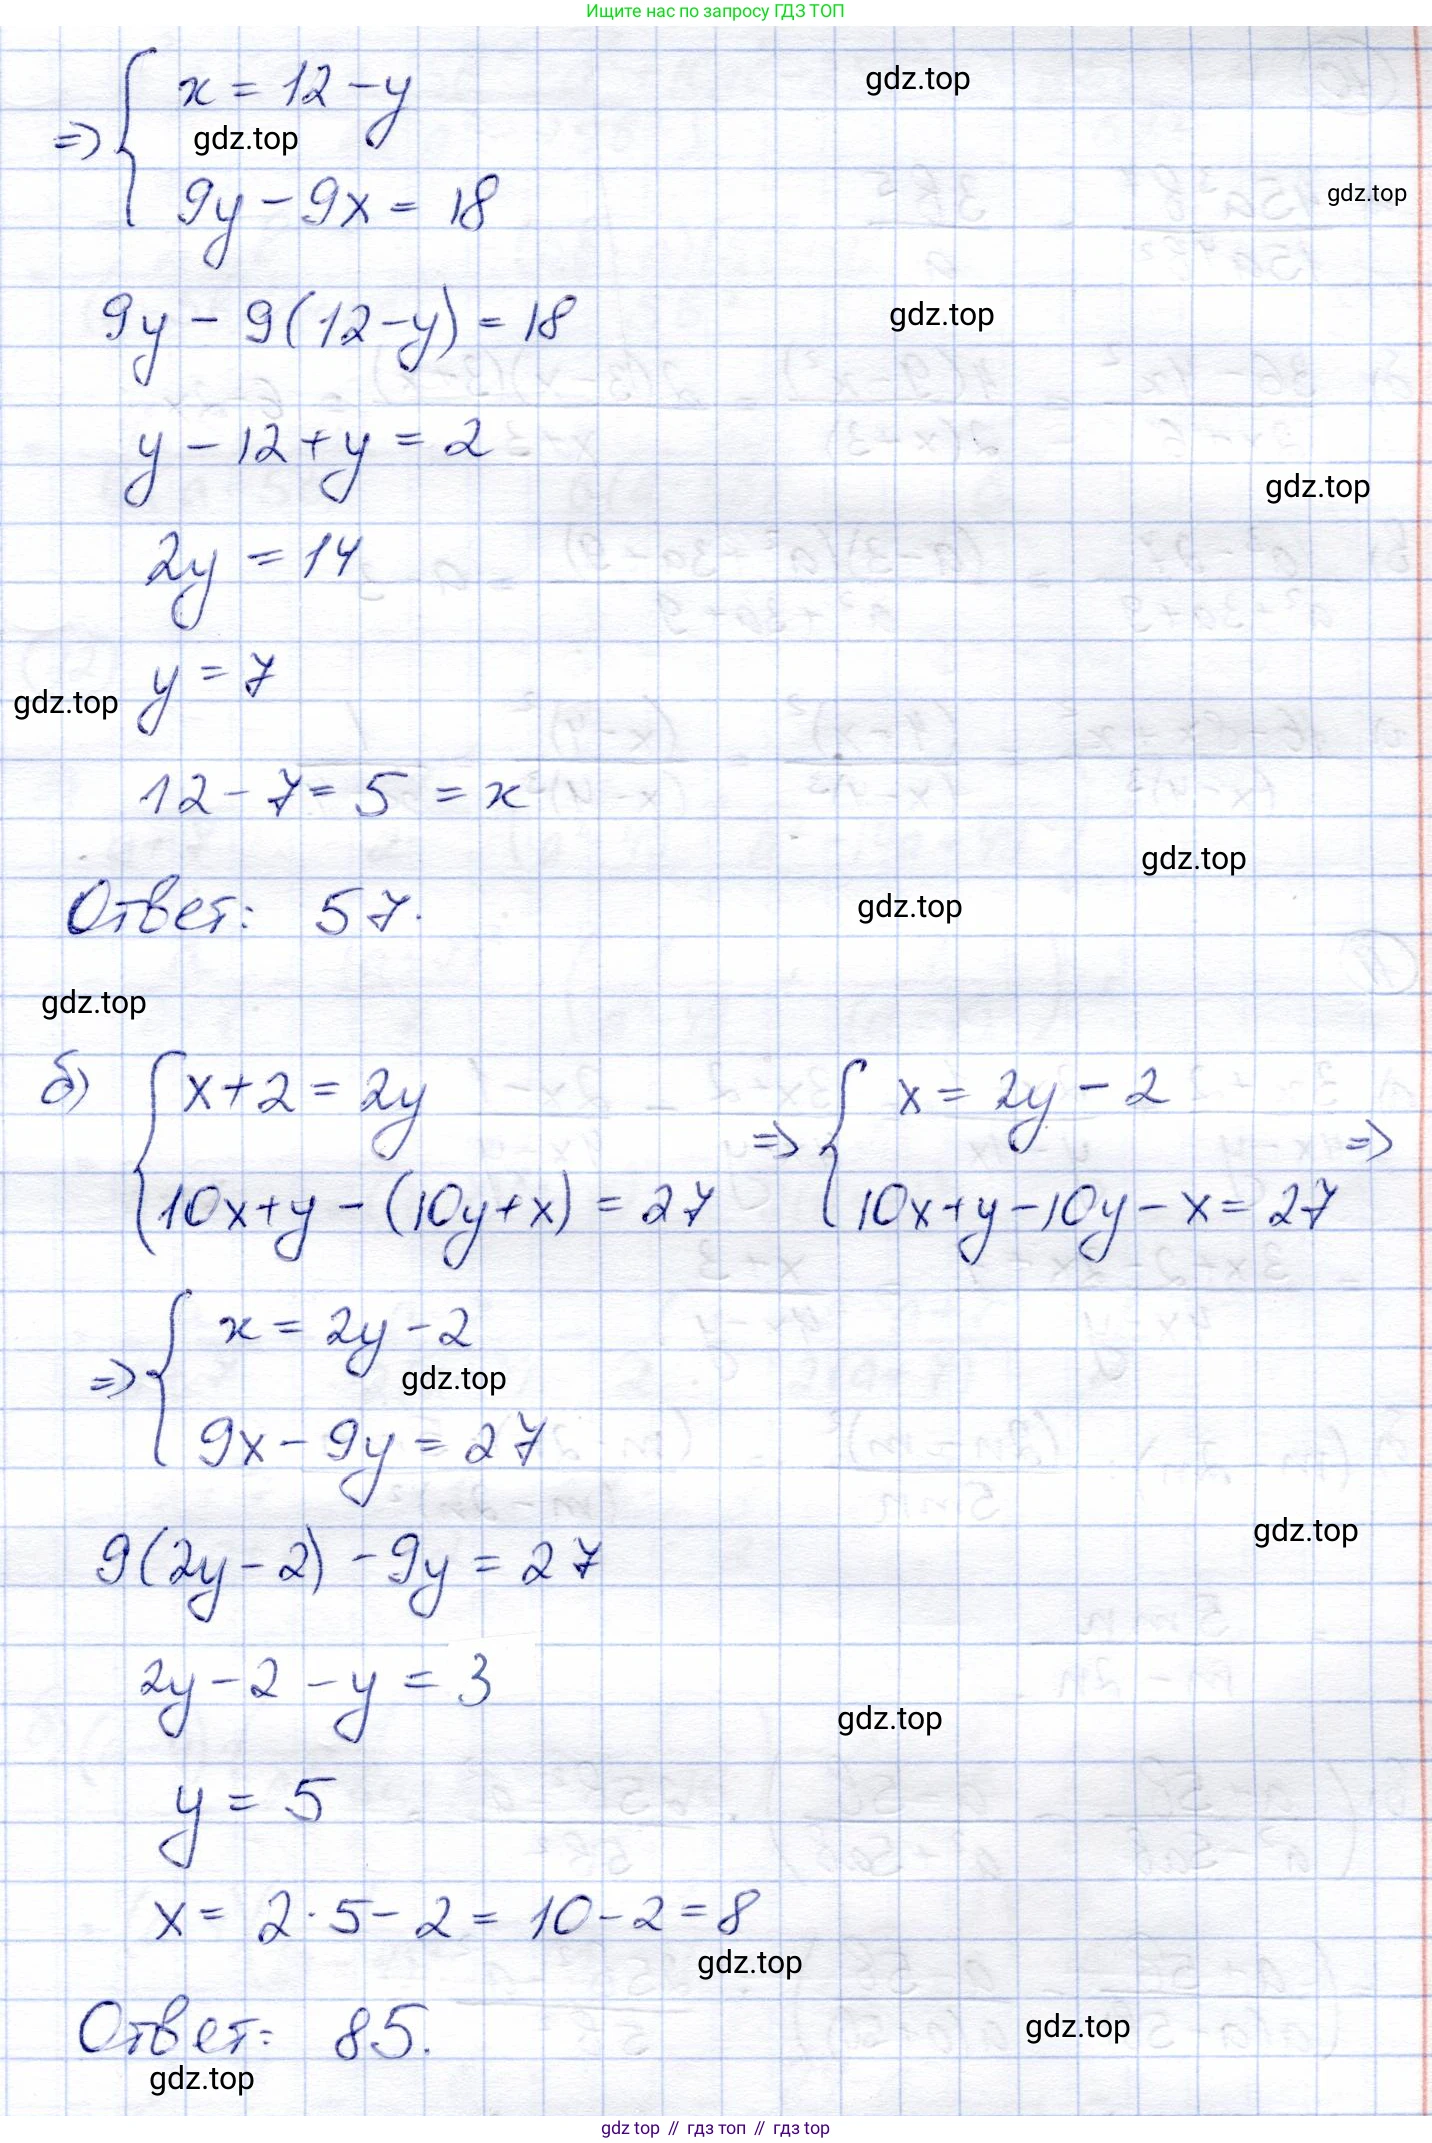 Ищите нас по запросу ГДЗ ТОП
x = 12 - y
gdz.top
=> {
gdz.top
9y - 9x = 18
gdz.top
9y - 9(12 - y) = 18
gdz.top
y - 12 + y = 2
gdz.top
2y = 14
y = 7
gdz.top
12 - 7 = 5 = x
gdz.top
Ответ: 57.
gdz.top
gdz.top
б) { x + 2 = 2y
10x + y - (10y + x) = 27
=> { x = 2y - 2
10x + y - 10y - x = 27 =>
=> { x = 2y - 2
gdz.top
9x - 9y = 27
gdz.top
9(2y - 2) - 9y = 27
2y - 2 - y = 3
gdz.top
y = 5
x = 2 · 5 - 2 = 10 - 2 = 8
gdz.top
Ответ: 85.
gdz.top
gdz.top
gdz top // гдз топ // гдз top